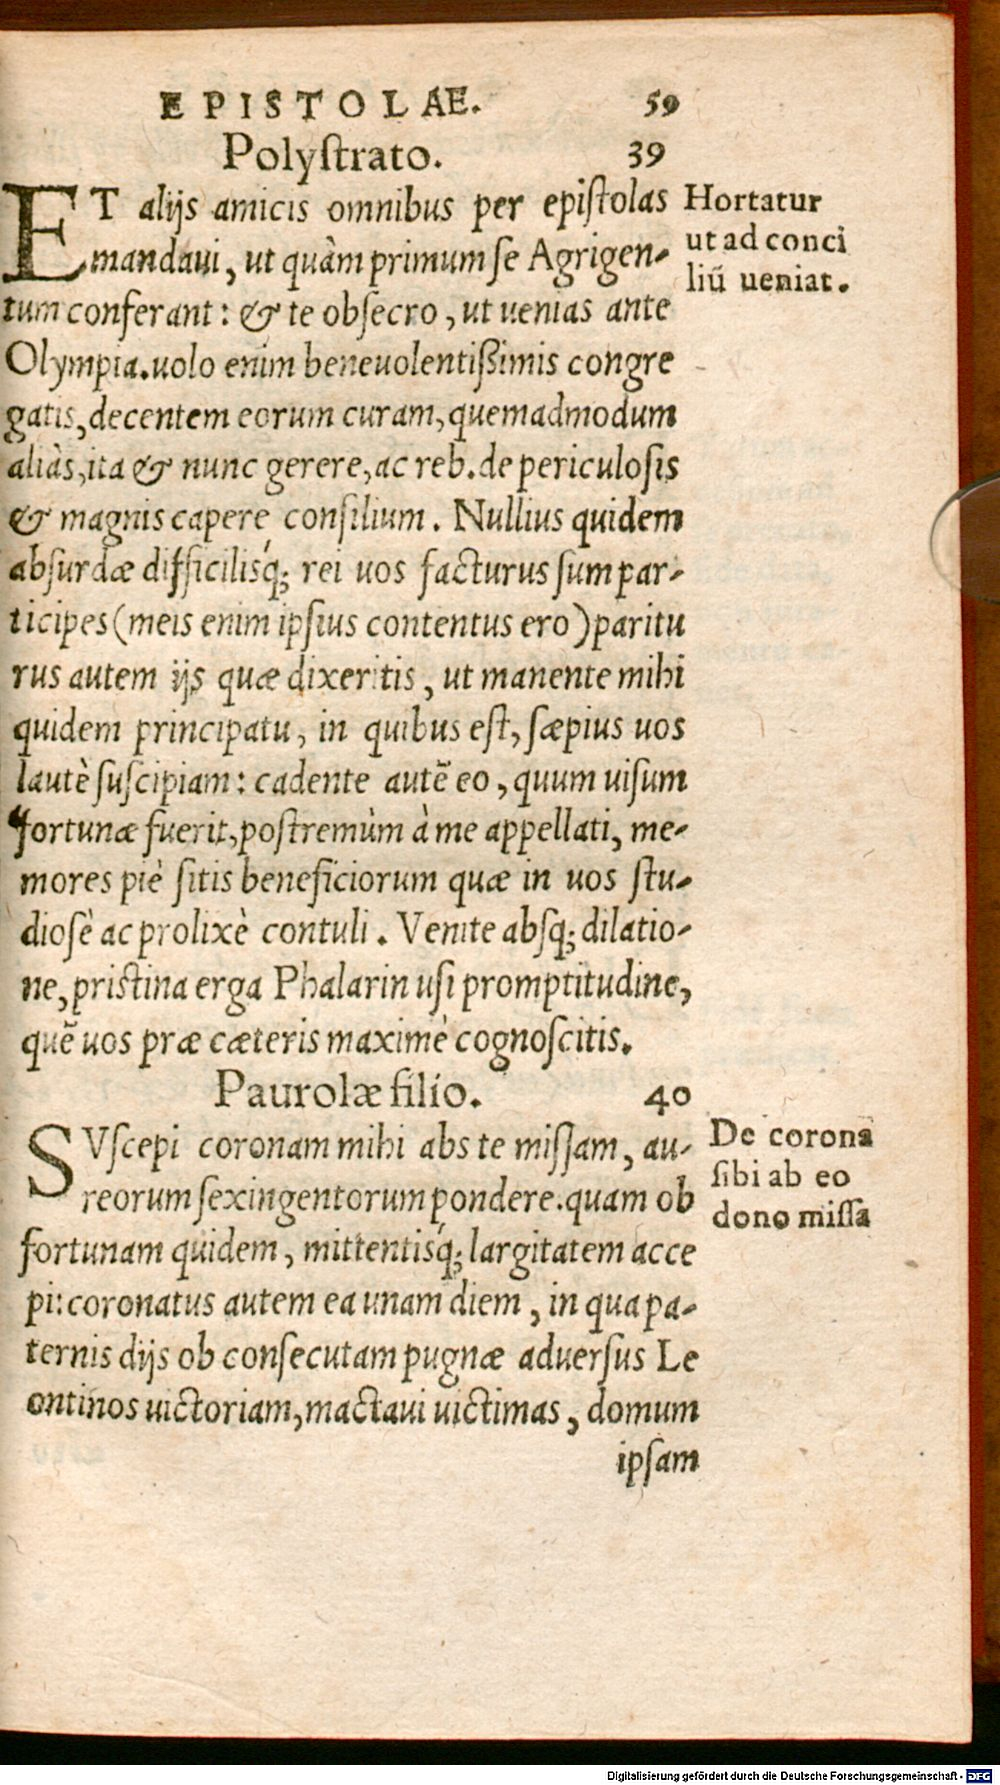 EPISTOLAE. 59
Polystrato. 39
ET alijs amicis omnibus per epistolas
mandaui, ut quàm primum se Agrigen-
tum conferant: & te obsecro, ut uenias ante
Olympia. uolo enim beneuolentißimis congre
gatis, decentem eorum curam, quemadmodum
aliàs, ita & nunc gerere, ac reb. de periculosis
& magnis capere consilium. Nullius quidem
absurdæ difficilisq́; rei uos facturus sum par-
ticipes (meis enim ipsius contentus ero) paritu
rus autem ijs quæ dixeritis, ut manente mihi
quidem principatu, in quibus est, sæpius uos
lautè suscipiam: cadente autē eo, quum uisum
fortunæ fuerit, postremùm à me appellati, me-
mores piè sitis beneficiorum quæ in uos stu-
diosè ac prolixè contuli. Venite absq; dilatio-
ne, pristina erga Phalarin usi promptitudine,
quē uos præ cæteris maximè cognoscitis.
Hortatur
ut ad conci
liū ueniat.
Paurolæ filio. 40
SVscepi coronam mihi abs te missam, au-
reorum sexingentorum pondere. quam ob
fortunam quidem, mittentisq́; largitatem acce
pi: coronatus autem ea unam diem, in qua pa-
ternis dijs ob consecutam pugnæ aduersus Le
ontinos uictoriam, mactaui uictimas, domum
ipsam
De corona
sibi ab eo
dono missa
Digitalisierung gefördert durch die Deutsche Forschungsgemeinschaft - DFG